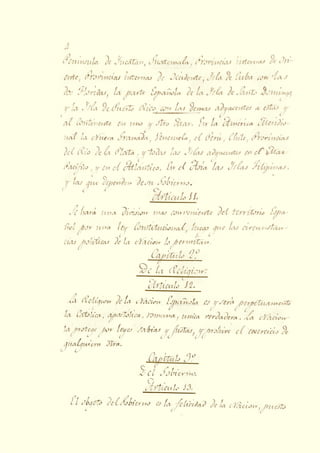 Peninsula de Yucatan, Guatemala, Provincias internas de Ori-
ente, Provincias internas de Occidente, Isla de Cuba con las
dos Floridas, la parte Española de la Isla de Santo Domingo
y la Isla de Puerto Rico con las demas adyacentes a estas y
al Continente en uno y otro Mar. En la America Meridio-
nal la Nueva Granada, Venezuela, el Perú, Chile, Provincias
del Rio de la Plata, y todas las Islas adyacentes en el Mar
Pacifico, y en el Atlantico. En el Asia las Islas Filipinas,
y las que dependen de su Gobierno.
Articulo 11.
Se hará una division mas conveniente del territorio Espa-
ñol por una ley Constitucional, luego que las circunstan-
cias politicas de la Nacion lo permitan.
Capitulo 2º
De la Religion.
Articulo 12.
La Religion de la Nacion Española es y será perpetuamente
la Catolica, apostolica, romana, unica verdadera. La Nacion
la protege por leyes sabias y justas, y prohive el exercicio de
qualquiera otra.
Capitulo 3º
Del Gobierno.
Articulo 13.
El objeto del Gobierno es la felicidad de la Nacion, puesto